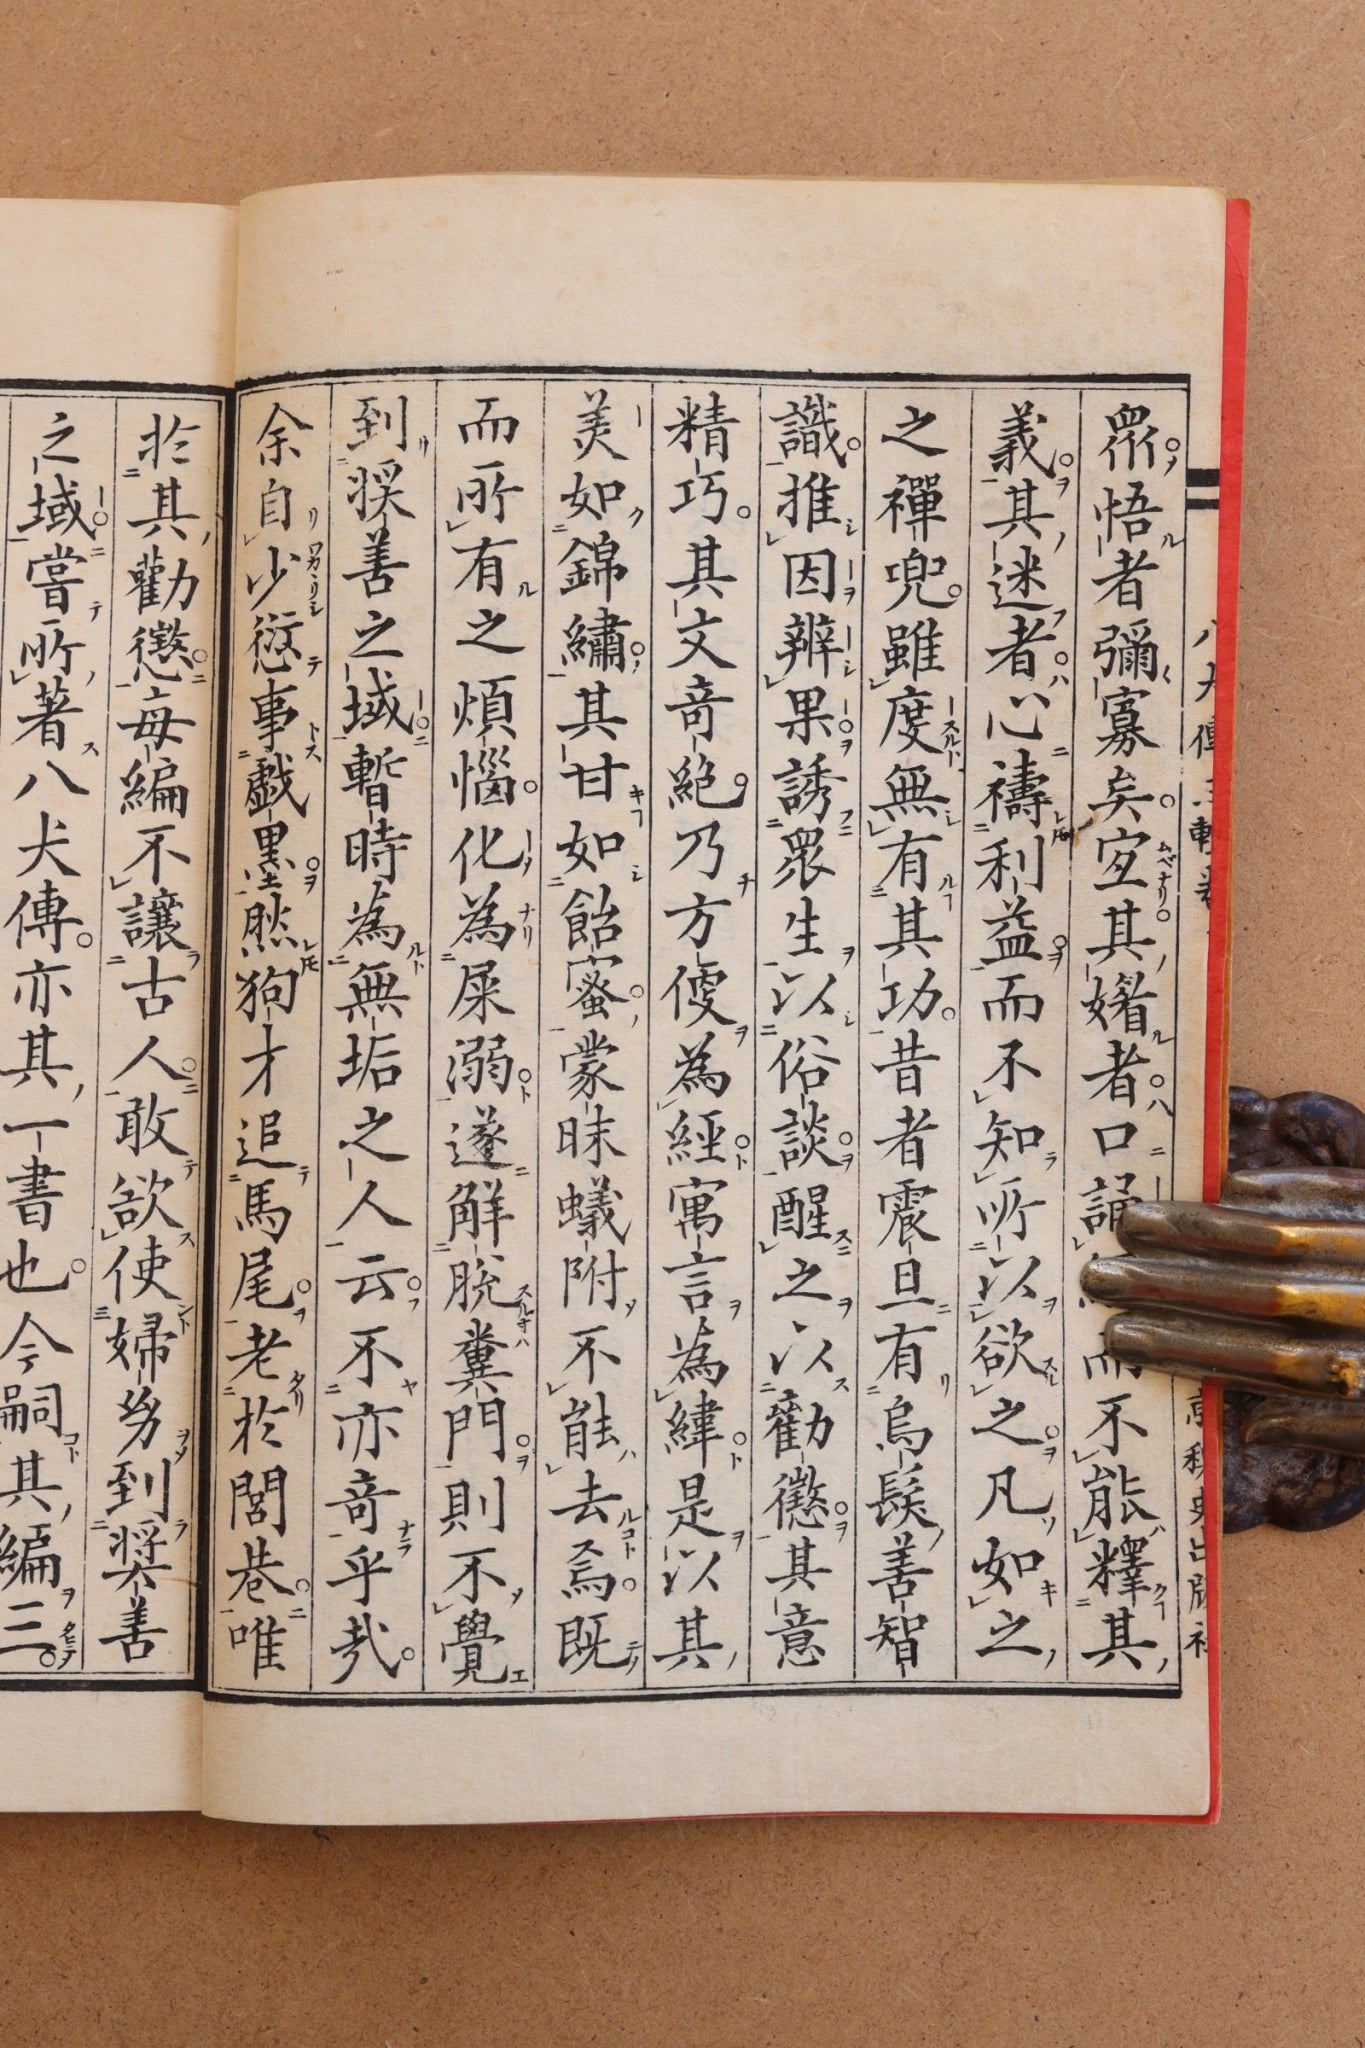 衆悟者彌寡矣宜其媎者口誦而不能釋其
義其迷者心禱利益而不知所以欲之凡如之
之禪兜雖度無有其功昔者震旦有烏髮善智
識推因辨果誘衆生以俗談醒之以勸懲其意
精巧其文奇絕乃方便為經寓言為緯是以其
美如錦繡其甘如飴蜜蒙昧蟻附不能去焉既
而所有之煩惱化為屎溺遂解脫糞門則不覺
到奨善之域暫時為無垢之人云不亦奇乎哉
余自少愆事戲墨然狗才追馬尾老於閭巷唯
於其勸懲每編不讓古人敢欲使婦幼到奨善
之域嘗所著八犬傳亦其一書也今嗣其編三